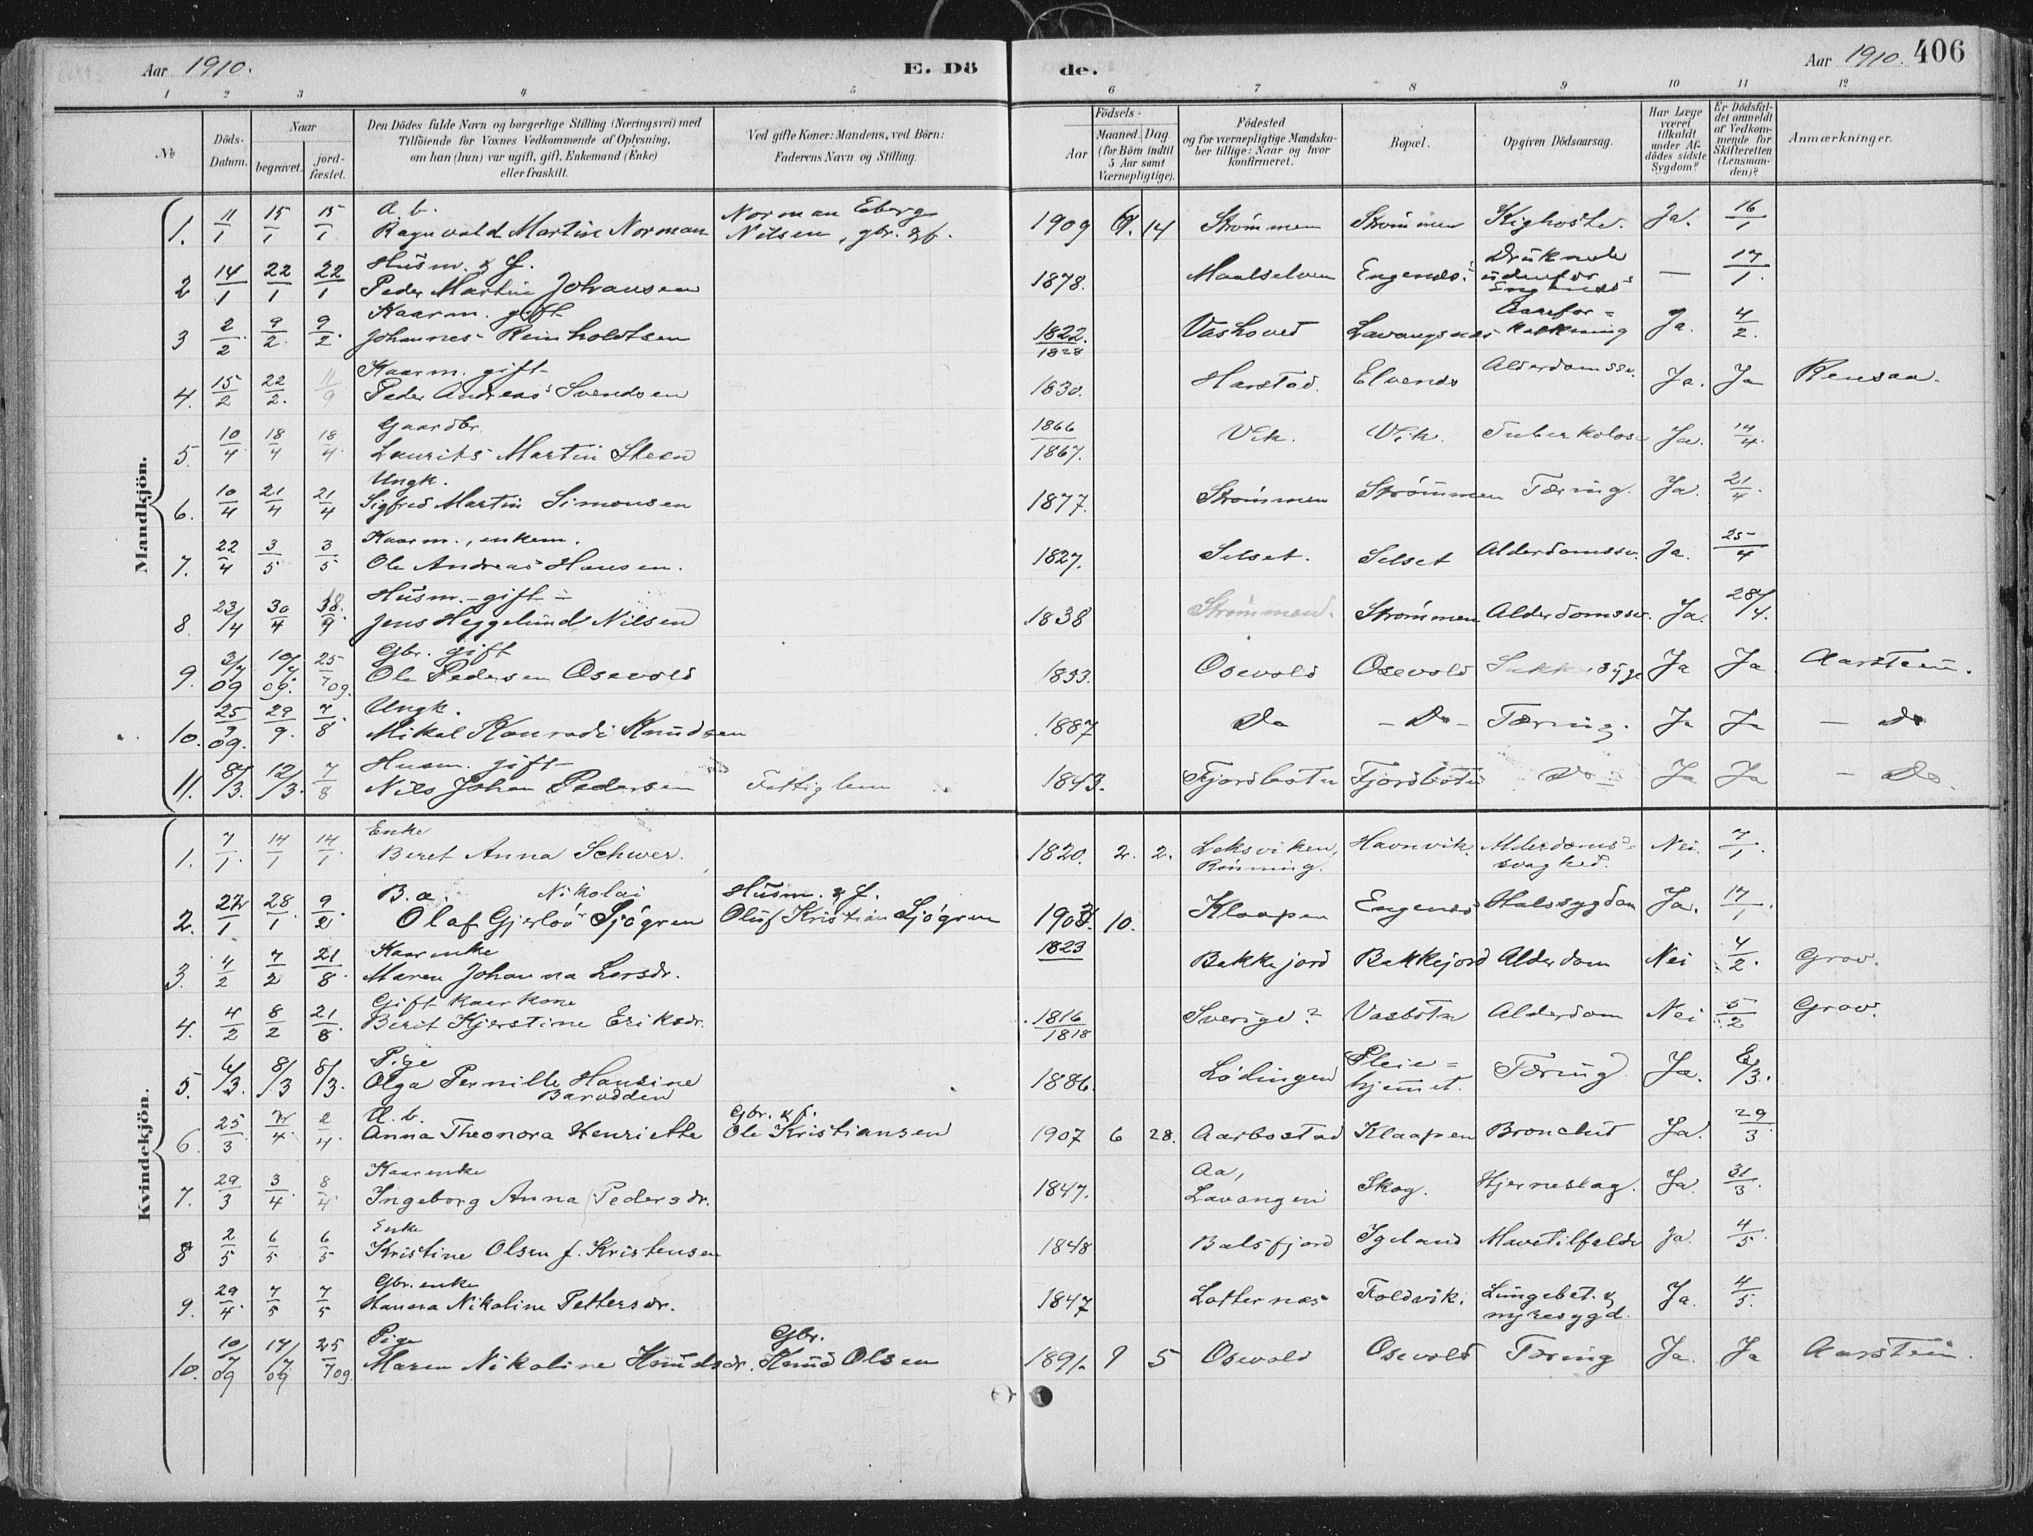 Aar 1910. E. Dö
de. Aar 1910. 406
1 2 3 4 5 6 7 8 9 10 11 12
No
Döds-Datum.
Naar
begravet. jordfæstet.
Den Dödes fulde Navn og borgerlige Stilling (Næringsvei) med
Tilföiende for Voxnes Vedkommende af Oplysning,
om han (hun) var ugift, gift, Enkemand (Enke)
eller fraskilt.
Ved gifte Koner: Mandens, ved Börn:
Faderens Navn og Stilling.
Födsels-
Aar Maaned. Dag.
(for Börn indtil
5 Aar samt
Værnepligtige).
Födested
og for værnepligtige Mandskaber
tillige: Naar og hvor
konfirmeret.
Bopæl.
Opgiven Dödsaarsag.
Har Læge været tilkaldt under Afdödes sidste Sygdom?
Er Dödsfaldet anmeldt af Vedkommende for Skifteretten (Lensmanden)?
Anmærkninger.
Mandkjön.
1. 11/1 15/1 15/1 A. b. Norman Eberg
Ragnvald Martin Norman Nilsen, gbr. & f. 1909 14 Strømmen Strømmen Kighoste. Ja. 16/1
2 14/1 22/1 22/1 Husm. & f.
Peder Martin Johansen 1878. Maalselven Engenes. Druknede udenfor Engenes — 17/1.
3 2/2 9/2 9/2 Kaarm. gift
Johannes Reinholdtsen 1822. 1828 Vashoved Lavangsnes Aarefor=kalkning Ja. 4/2.
4. 15/2 22/2 11/9 Kaarm. gift
Peder Andreas Svendsen 1830. Harstad. Elvenes Alderdomssv. Ja. Ja Rensaa.
5. 10/4 18/4 18/4 Gaardbr.
Laurits Martin Steen 1866 1867. Vik. Vik. Tuberkolose Ja. 14/4.
6. 10/4 21/4 21/4 Ungk.
Sigfred Martin Simonsen 1877. Strømmen Strømmen Tæring. Ja. 21/4.
7. 22/4 3/5 3/5 Kaarm., enkem.
Ole Andreas Hansen. 1827. Selset. Selset Alderdomssv. Ja. 25/4
8. 23/4 30/4 18/9 Husm. - gift -
Jens Heggelund Nilsen 1838 Strømmen. Strømmen Alderdomssv. Ja. 28/4.
9. 3/7 09 10/7 09. 25/7 09. Gbr. gift
Ole Pedersen Osevold 1833. Osevold Osevold Sukkersyge Ja Ja Aarstein.
10. 25/9 09. 29/9. 7/8 Ungk.
Mikal Konradi Knudsen 1887 Do - Do - Tæring. Ja Ja - Do
11. 8/3. 12/3. 7/8 Husm. gift
Nils Johan Pedersen Fattiglem 1843. Fjordbotn Fjordbotn Do - Ja Ja - Do.
Kvindekjön.
1. 7/1. 14/1 14/1. Enke
Beret Anna Schwer. 1820. 2. 2. Leksviken, Rønning. Havnvik. Alderdoms=svaghed. Nei. 7/1.
2. 22/1 28/1. 9/2. B. a. Nikolai Husm. & f.
Olaf Gjerløv Sjögren Oluf Kristian Sjögren 10. Klaapen Engenes Halssygdom Ja. 17/1.
3. 4/2 7/2 21/8. Kaarenke
Maren Johanna Larsdr. 1823 Bakkejord Bakkejord Alderdom Nei 4/2. Grov.
4. 4/2 8/2 21/8 Gift kaarkone
Berit Kjerstine Eriksdr. 1816 1818 Sverige? Vasbotn Alderdom Nei 5/2 Grov.
5. 4/3. 8/3 8/3. Pige
Olga Pernille Hansine Barodden 1886. Lødingen Pleie=hjemmet. Tæring. Ja. 8/3.
6. 25/3. 2/4. 2/4. A. b. Gbr. & f.
Anna Theonora Henriette Ole Kristiansen 1907 6 28. Aarbostad Klaapen Bronchit Ja. 29/3
7. 29/3 3/4. 8/4. Kaarenke
Ingeborg Anna Pedersdr. 1847. Aa, Lavangen Skog. Hjerneslag. Ja. 31/3.
8 2/5 6/5 6/5 Enke
Kristine Olsen f. Kristensen 1848 Balsfjord Igeland Mavetilfælde Ja. 4/5.
9. 29/4. 7/5 7/5 Gbr. enke
Hanna Nikoline Pettersdr. 1847 Latternes Foldvik. Lungebet. & nyresygd. Ja. 4/5.
10. 10/7 09 17/7 09 25/7 09. Pige Gbr.
Maren Nikoline Knudsdr. Knud Olsen 1891. 9 5 Osevold Osevold Tæring Ja. Ja Aarstein.